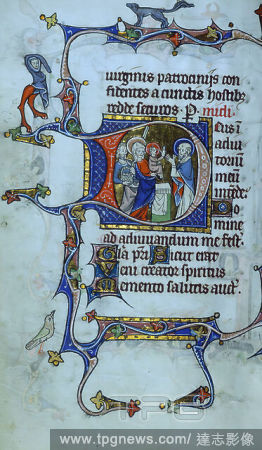 uirginis patrocinijs con
fidentes a cunctis hostib
redde securos. P. midi
Deus ĩ
adiu
toriũ
meũ
intende.
Do
mine
ad adiuuandum me fest.
Gla p̃r. Sicut erat
Veni creator spiritus
Memento salutis auct.
TPG
www.tpgnews.com/ 達志影像